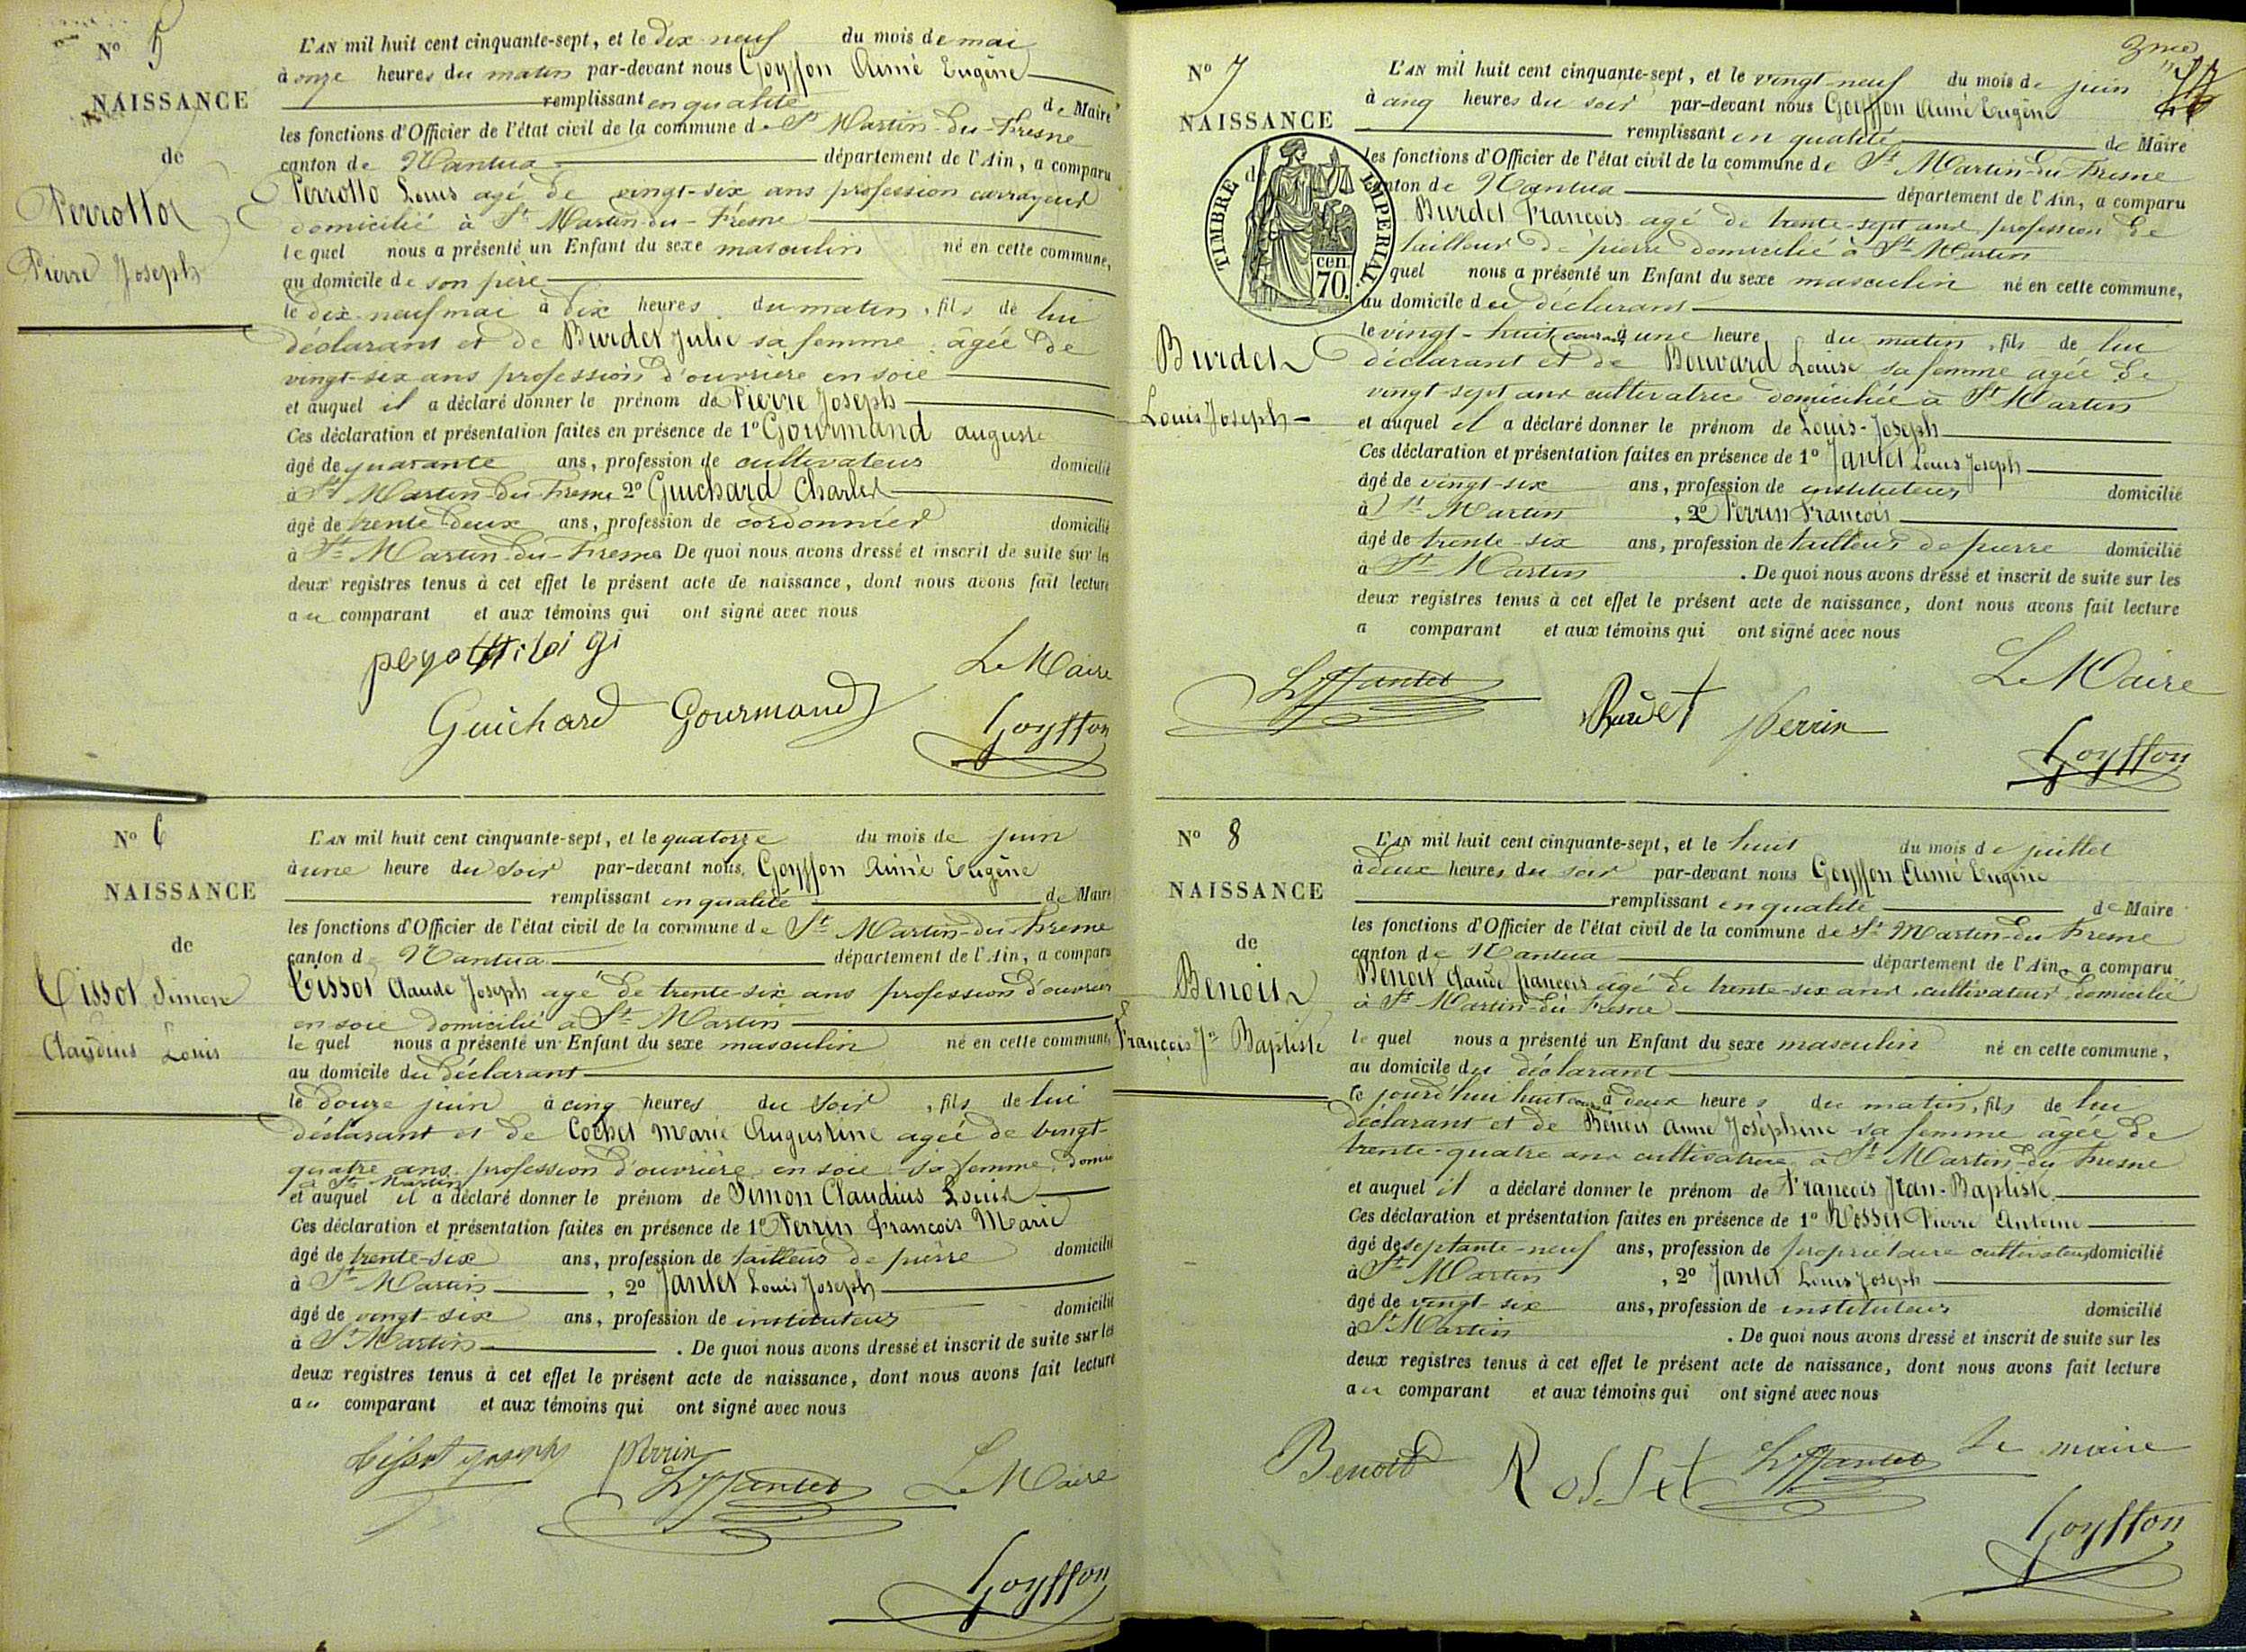 N° 5
NAISSANCE
de
Perrotto
Pierre Joseph
L'AN mil huit cent cinquante-sept, et le dix neuf du mois de mai
à onze heures du matin par-devant nous Goyffon Aimé Eugène
remplissant en qualité de Maire
les fonctions d'Officier de l'état civil de la commune de St Martin-du-Fresne
canton de Nantua département de l'Ain, a comparu
Perrotto Louis agé de vingt-six ans profession
domicilié à St Martin-du-Fresne
le quel nous a présenté un Enfant du sexe masculin né en cette commune,
au domicile de son père
le dix-neuf mai à dix heures du matin, fils de lui
déclarant et de Burdet Julie sa femme âgée de
vingt-six ans profession d'ouvrière en soie
et auquel il a déclaré donner le prénom de Pierre Joseph
Ces déclaration et présentation faites en présence de 1° Gourmand auguste
âgé de quarante ans, profession de cultivateur domicilié
à St Martin-du-Fresne 2° Guichard Charles
âgé de trente deux ans, profession de cordonnier domicilié
à St Martin-du-Fresne De quoi nous avons dressé et inscrit de suite sur les
deux registres tenus à cet effet le présent acte de naissance, dont nous avons fait lecture
au comparant et aux témoins qui ont signé avec nous
Le Maire
Guichard Gourmand Goyffon
N° 6
NAISSANCE
de
Tissot Simon
Claudius Louis
L'AN mil huit cent cinquante-sept, et le quatorze du mois de juin
à une heure du soir par-devant nous, Goyffon Aimé Eugène
remplissant en qualité de Maire
les fonctions d'Officier de l'état civil de la commune de St Martin-du-Fresne
canton d Nantua département de l'Ain, a comparu
Tissot Claude Joseph agé de trente-six ans profession d'ouvrier
en soie domicilié à St Martin
le quel nous a présenté un Enfant du sexe masculin né en cette commune,
au domicile du déclarant
le douze juin à cinq heures du soir, fils de lui
déclarant et de Cochet Marie Augustine agée de vingt-
quatre ans profession d'ouvrière en soie sa femme, domic
à St Martin
et auquel il a déclaré donner le prénom de Simon Claudius Louis
Ces déclaration et présentation faites en présence de 1° Perrin François Marie
âgé de trente-six ans, profession de tailleur de pierre domicilié
à St Martin, 2° Jantet Louis Joseph
âgé de vingt-six ans, profession de instituteur domicilié
à St Martin. De quoi nous avons dressé et inscrit de suite sur les
deux registres tenus à cet effet le présent acte de naissance, dont nous avons fait lecture
au comparant et aux témoins qui ont signé avec nous
Tissot joseph Perrin
LJJantet Le Maire
Goyffon
3me
N° 7
NAISSANCE
d
TIMBRE IMPERIAL.
cen
70.
Burdet
Louis Joseph
L'AN mil huit cent cinquante-sept, et le vingt-neuf du mois de juin
à cinq heures du soir par-devant nous Goyffon Aimé Eugène
remplissant en qualité de Maire
les fonctions d'Officier de l'état civil de la commune de St Martin-du-Fresne
nton de Nantua département de l'Ain, a comparu
Burdet François agé de trente-sept ans profession de
tailleur de pierre domicilié à St Martin
quel nous a présenté un Enfant du sexe masculin né en cette commune,
au domicile du déclarant
le vingt-huit courant à une heure du matin, fils de lui
déclarant et de Bouvard Louise sa femme agée de
vingt sept ans cultivatrice domiciliée à St Martin
et auquel il a déclaré donner le prénom de Louis-Joseph
Ces déclaration et présentation faites en présence de 1° Jantet Louis Joseph
âgé de vingt-six ans, profession de instituteur domicilié
à St Martin, 2° Perrin François
âgé de trente-six ans, profession de tailleur de pierre domicilié
à St Martin. De quoi nous avons dressé et inscrit de suite sur les
deux registres tenus à cet effet le présent acte de naissance, dont nous avons fait lecture
a comparant et aux témoins qui ont signé avec nous
Le Maire
LJJantet Burdet Perrin
Goyffon
N° 8
NAISSANCE
de
Benoit
François Jn Baptiste
L'AN mil huit cent cinquante-sept, et le huit du mois de juillet
à deux heures du soir par-devant nous Goyffon Aimé Eugène
remplissant en qualité de Maire
les fonctions d'Officier de l'état civil de la commune de St Martin-du Fresne
canton de Nantua département de l'Ain, a comparu
Benoit Claude françois agé de trente-six ans cultivateur domicilié
à St Martin-du Fresne
le quel nous a présenté un Enfant du sexe masculin né en cette commune,
au domicile du déclarant
ce jourd'hui huit courant à deux heures du matin, fils de lui
déclarant et de Benoit Anne Joséphine sa femme agée de
trente-quatre ans cultivatrice à St Martin-du Fresne
et auquel il a déclaré donner le prénom de François Jean-Baptiste
Ces déclaration et présentation faites en présence de 1° Rosset Pierre Antoine
âgé de septante-neuf ans, profession de propriétaire cultivateur domicilié
à St Martin, 2° Jantet Louis Joseph
âgé de vingt-six ans, profession de instituteur domicilié
à St Martin. De quoi nous avons dressé et inscrit de suite sur les
deux registres tenus à cet effet le présent acte de naissance, dont nous avons fait lecture
au comparant et aux témoins qui ont signé avec nous
Benoit Rosset LJJantet Le maire
Goyffon